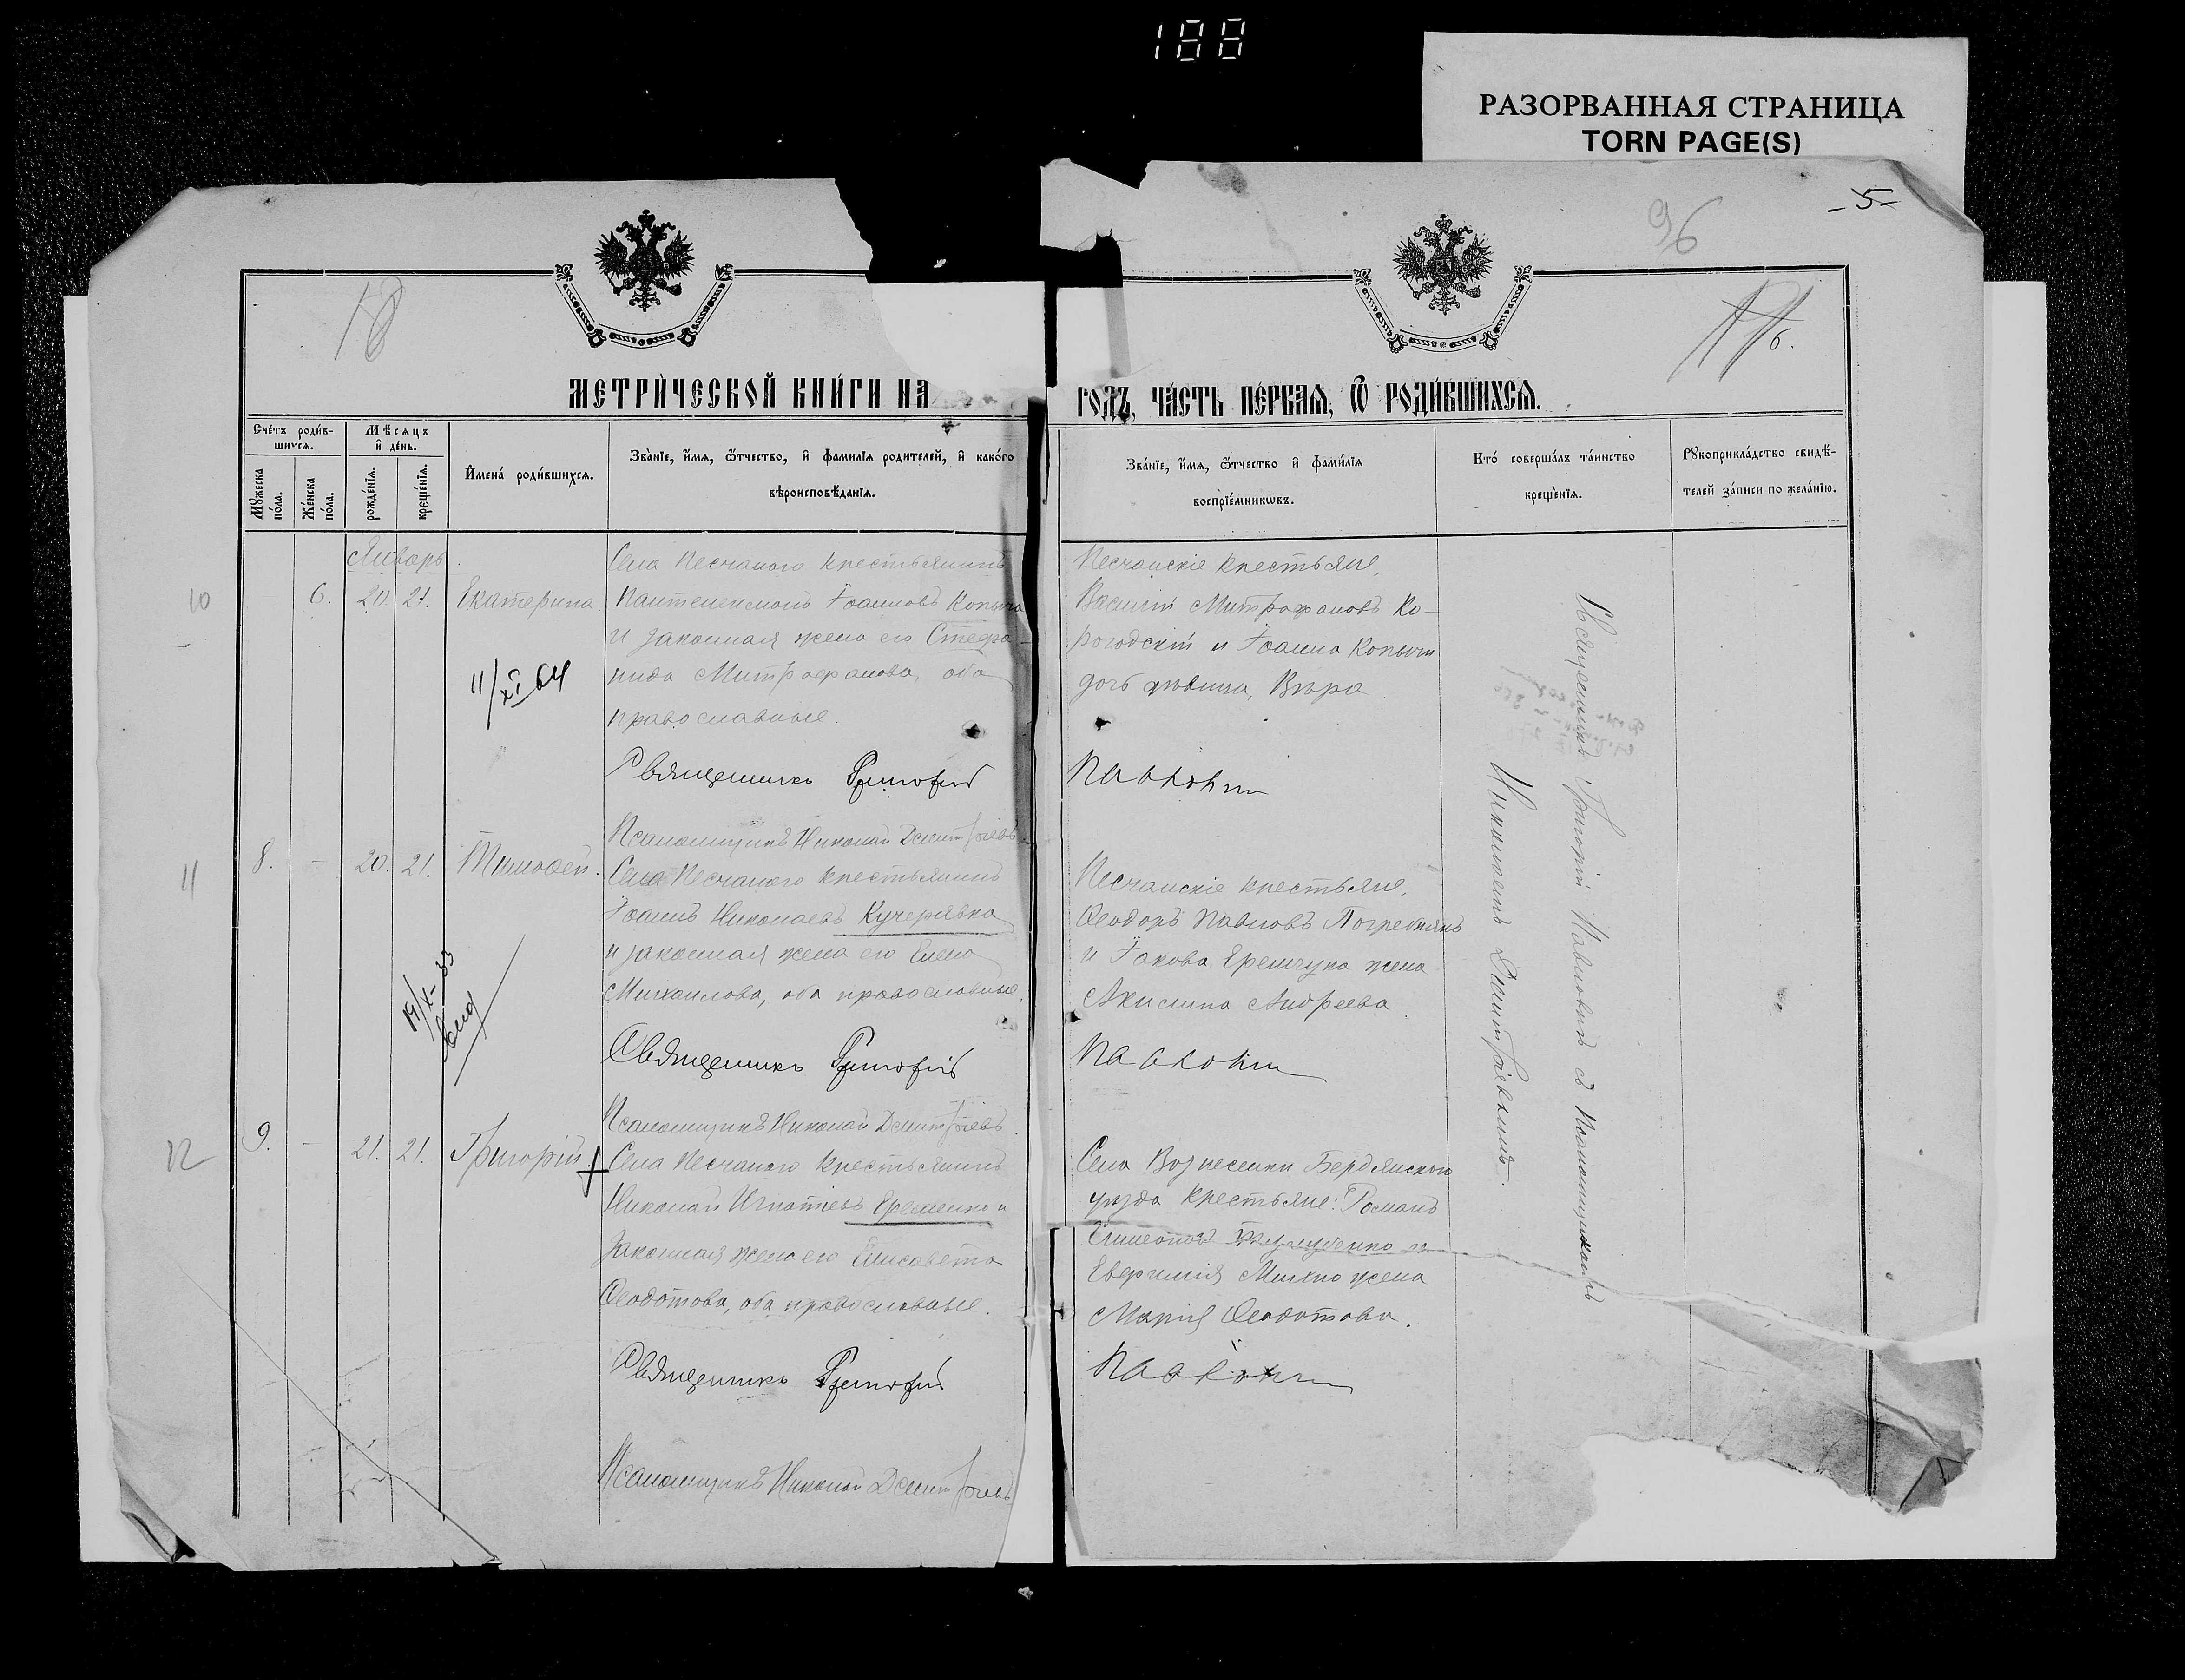 188
РАЗОРВАННАЯ СТРАНИЦА
TORN PAGE(S)
-5-
96
18
МЕТРИ́ЧЕСКОЙ КНИ́ГИ НА
ГОДЪ, ЧА́СТЬ ПЕ́РВАѦ, Ѿ РОДИ́ВШИХСѦ.
Сче́тъ роди́в-
шихсѧ.
Мѣ́сѧцъ
и҆ де́нь.
Мꙋ́жеска
по́ла.
Же́нска
по́ла.
рожде́нїѧ.
креще́нїѧ.
И҆мена̀ роди́вшихсѧ.
Зва́нїе, и҆́мѧ, ѻ҆́тчество, и҆ фами́лїѧ роди́телей, и҆ како́гѡ
вѣроисповѣ́данїѧ.
Зва́нїе, и҆́мѧ, ѻ҆́тчество и҆ фами́лїѧ
воспрїе́мникѡвъ.
Кто̀ соверша́лъ та́инство
креще́нїѧ.
Рꙋкоприкла́дство свидѣ́-
телей за́писи по жела́нїю.
Январь
10
6. 20 21. Екатерина.
Села Песчаного крестьянинъ
Пантелеимонъ Іоанновъ Копыча
и законная жена его Стефа-
нида Митрофанова, оба
православные.
11/XI 64
Священникъ Григорій
Псаломщикъ Николай Дмитріевъ
Песчанскіе крестьяне,
Василій Митрофановъ Ко-
рогодскій и Іоанна Копычи
дочь дѣвица, Вѣра.
Павловичъ
11
8. - 20. 21. Тимоѳей.
Села Песчаного крестьянинъ
Іоаннъ Николаевъ Кучерявка
и законная жена его Елена
Михаилова, оба православные.
Священникъ Григорій
Псаломщикъ Николай Дмитріевъ
Песчанскіе крестьяне,
Ѳеодоръ Павловъ Погребнякъ
и Іакова Еремчука жена
Акилина Андреева.
Павловичъ
12
9. - 21. 21. Григорій.
Села Песчаного крестьянинъ
Николай Игнатіевъ Еременко и
законная жена его Елисавета
Ѳеодотова, оба православные.
Священникъ Григорій
Псаломщикъ Николай Дмитріевъ
Села Вознесенки Бердянскаго
уѣзда крестьяне: Романъ
Симеоновъ
Евфимія Михно жена
Марія Ѳеодотова.
Павловичъ
Священникъ Григорій Павловичъ съ Псаломщикомъ
Николаемъ Дмитріевымъ.